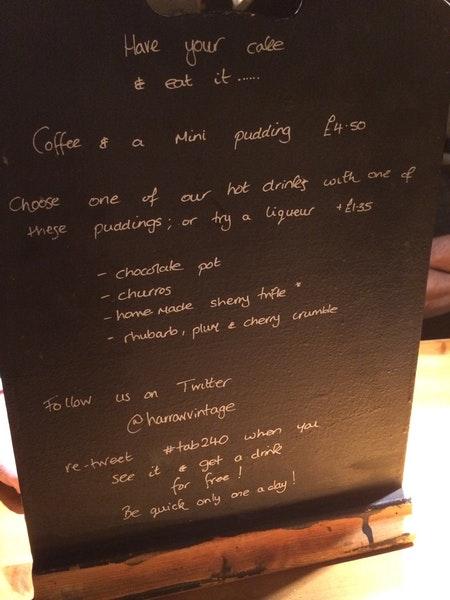 Have your cake
& eat it......
Coffee & a mini pudding £4.50
Choose one of our hot drinks with one of
these puddings; or try a liqueur +£1.35
- chocolate pot
- churros
- home made sherry trifle *
- rhubarb, plum & cherry crumble
Follow us on Twitter
@harrowvintage
re-tweet #tab240 when you
see it & get a drink
for free!
Be quick only one a day!